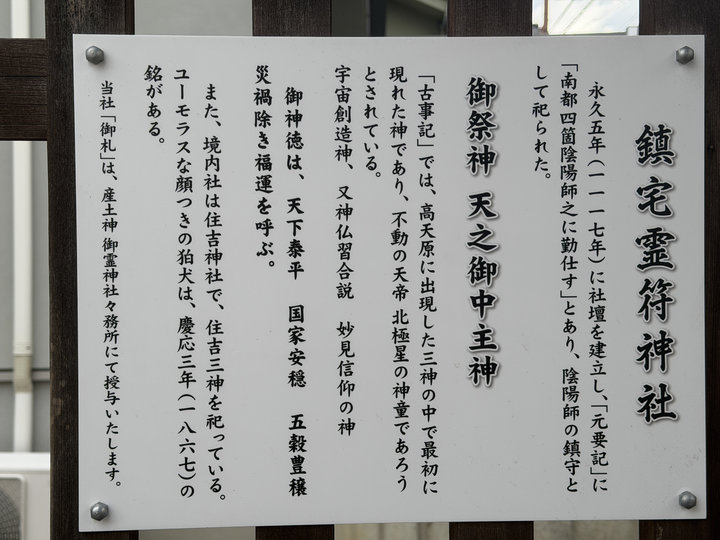 鎮宅霊符神社
永久五年(一一一七年)に社壇を建立し、「元要記」に
「南都四箇陰陽師之に勤仕す」とあり、陰陽師の鎮守と
して祀られた。
御祭神 天之御中主神
「古事記」では、高天原に出現した三神の中で最初に
現れた神であり、不動の天帝 北極星の神童であろう
とされている。
宇宙創造神、又神仏習合説 妙見信仰の神
御神徳は、天下泰平 国家安穏 五穀豊穣
災禍除き福運を呼ぶ。
また、境内社は住吉神社で、住吉三神を祀っている。
ユーモラスな顔つきの狛犬は、慶応三年(一八六七)の
銘がある。
当社「御札」は、産土神 御霊神社々務所にて授与いたします。